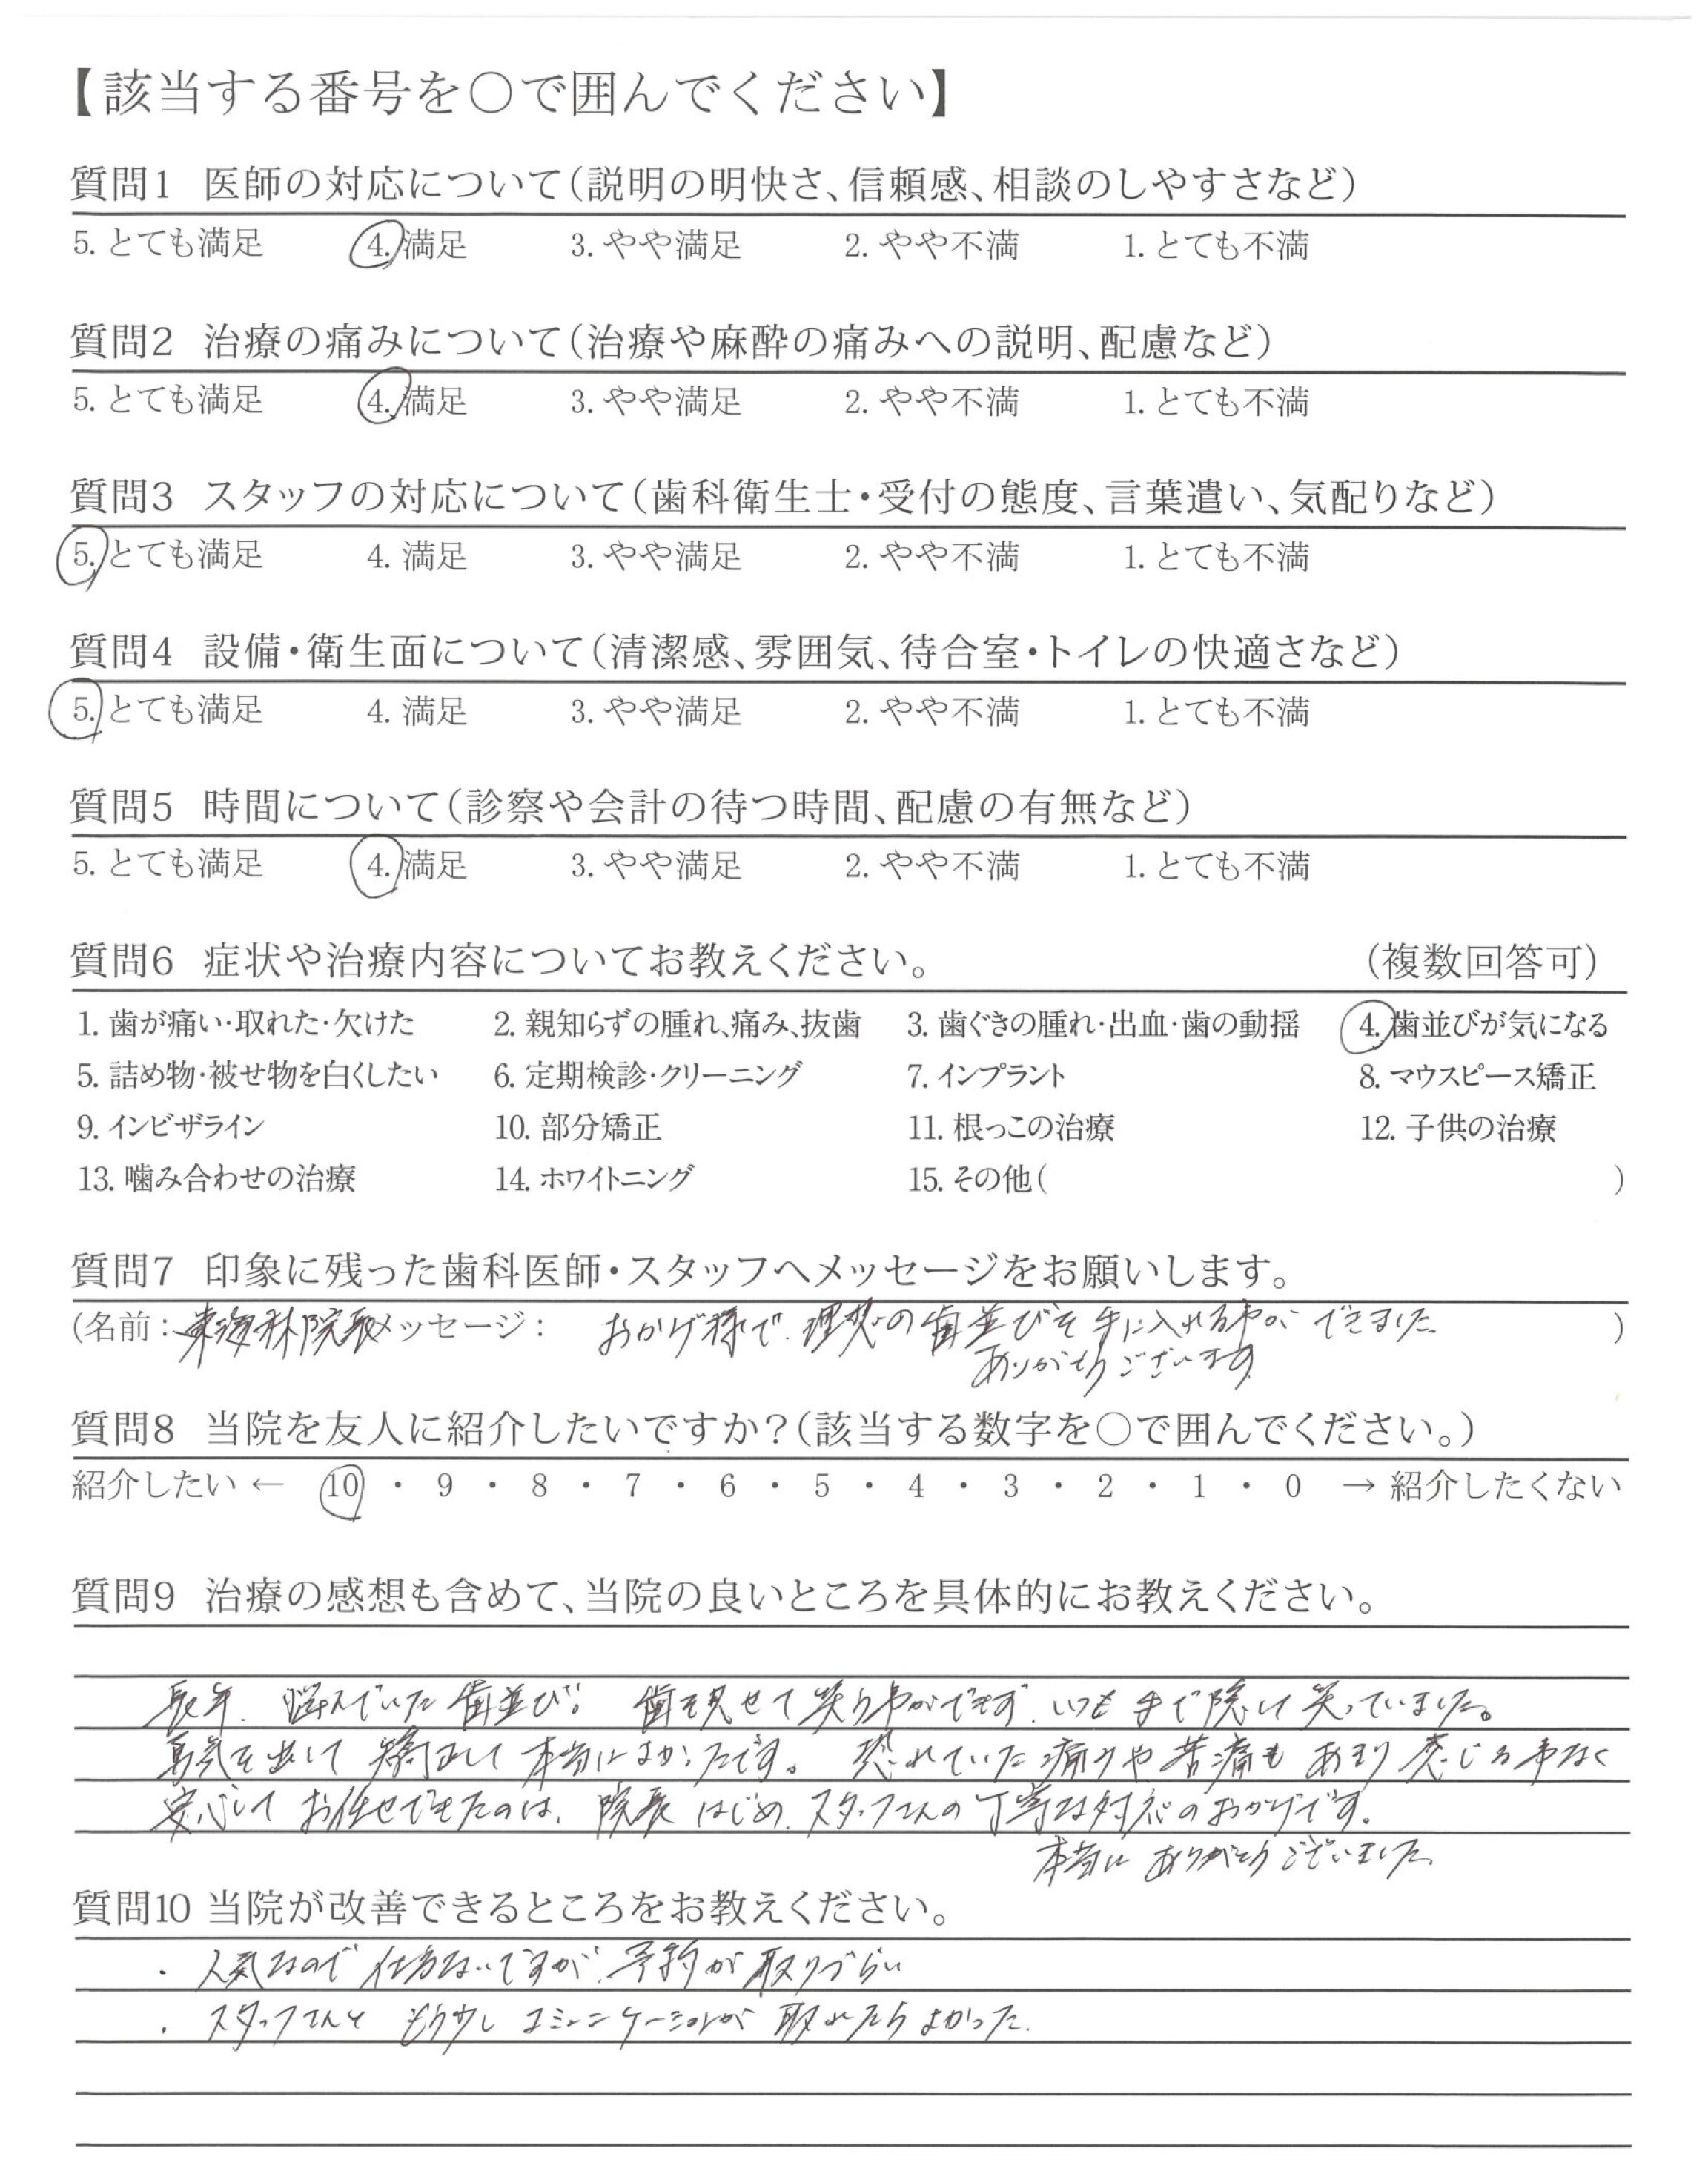 【該当する番号を○で囲んでください】
質問1 医師の対応について(説明の明快さ、信頼感、相談のしやすさなど)
5. とても満足 4. 満足 3. やや満足 2. やや不満 1. とても不満
質問2 治療の痛みについて(治療や麻酔の痛みへの説明、配慮など)
5. とても満足 4. 満足 3. やや満足 2. やや不満 1. とても不満
質問3 スタッフの対応について(歯科衛生士・受付の態度、言葉遣い、気配りなど)
5. とても満足 4. 満足 3. やや満足 2. やや不満 1. とても不満
質問4 設備・衛生面について(清潔感、雰囲気、待合室・トイレの快適さなど)
5. とても満足 4. 満足 3. やや満足 2. やや不満 1. とても不満
質問5 時間について(診察や会計の待つ時間、配慮の有無など)
5. とても満足 4. 満足 3. やや満足 2. やや不満 1. とても不満
質問6 症状や治療内容についてお教えください。 (複数回答可)
1. 歯が痛い・取れた・欠けた 2. 親知らずの腫れ、痛み、抜歯 3. 歯ぐきの腫れ・出血・歯の動揺 4. 歯並びが気になる
5. 詰め物・被せ物を白くしたい 6. 定期検診・クリーニング 7. インプラント 8. マウスピース矯正
9. インビザライン 10. 部分矯正 11. 根っこの治療 12. 子供の治療
13. 噛み合わせの治療 14. ホワイトニング 15. その他( )
質問7 印象に残った歯科医師・スタッフへメッセージをお願いします。
(名前：東海林院長 メッセージ： おかげ様で、理想の歯並びを手に入れる事ができました )
ありがとうございます
質問8 当院を友人に紹介したいですか?(該当する数字を○で囲んでください。)
紹介したい ← 10 ・ 9 ・ 8 ・ 7 ・ 6 ・ 5 ・ 4 ・ 3 ・ 2 ・ 1 ・ 0 → 紹介したくない
質問9 治療の感想も含めて、当院の良いところを具体的にお教えください。
長年、悩んでいた歯並び。 歯を見せて笑う事ができず、いつも手で隠して笑っていました。
勇気を出して矯正して本当によかったです。 恐れていた痛みや苦痛もあまり感じる事なく
安心してお任せできたのは、院長はじめ、スタッフさんの丁寧な対応のおかげです。
本当にありがとうございました
質問10 当院が改善できるところをお教えください。
・人気なので仕方ないですが、予約が取りづらい
・スタッフさんともう少しコミュニケーションが取れたらよかった.